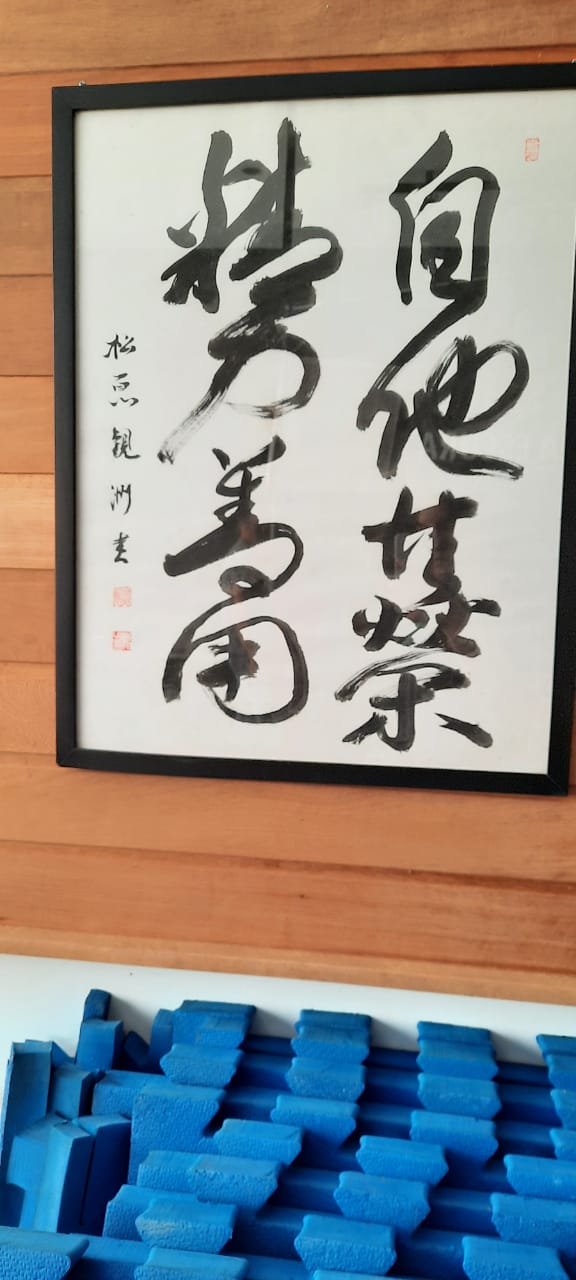 自他共榮
精力善用
松原観洲書